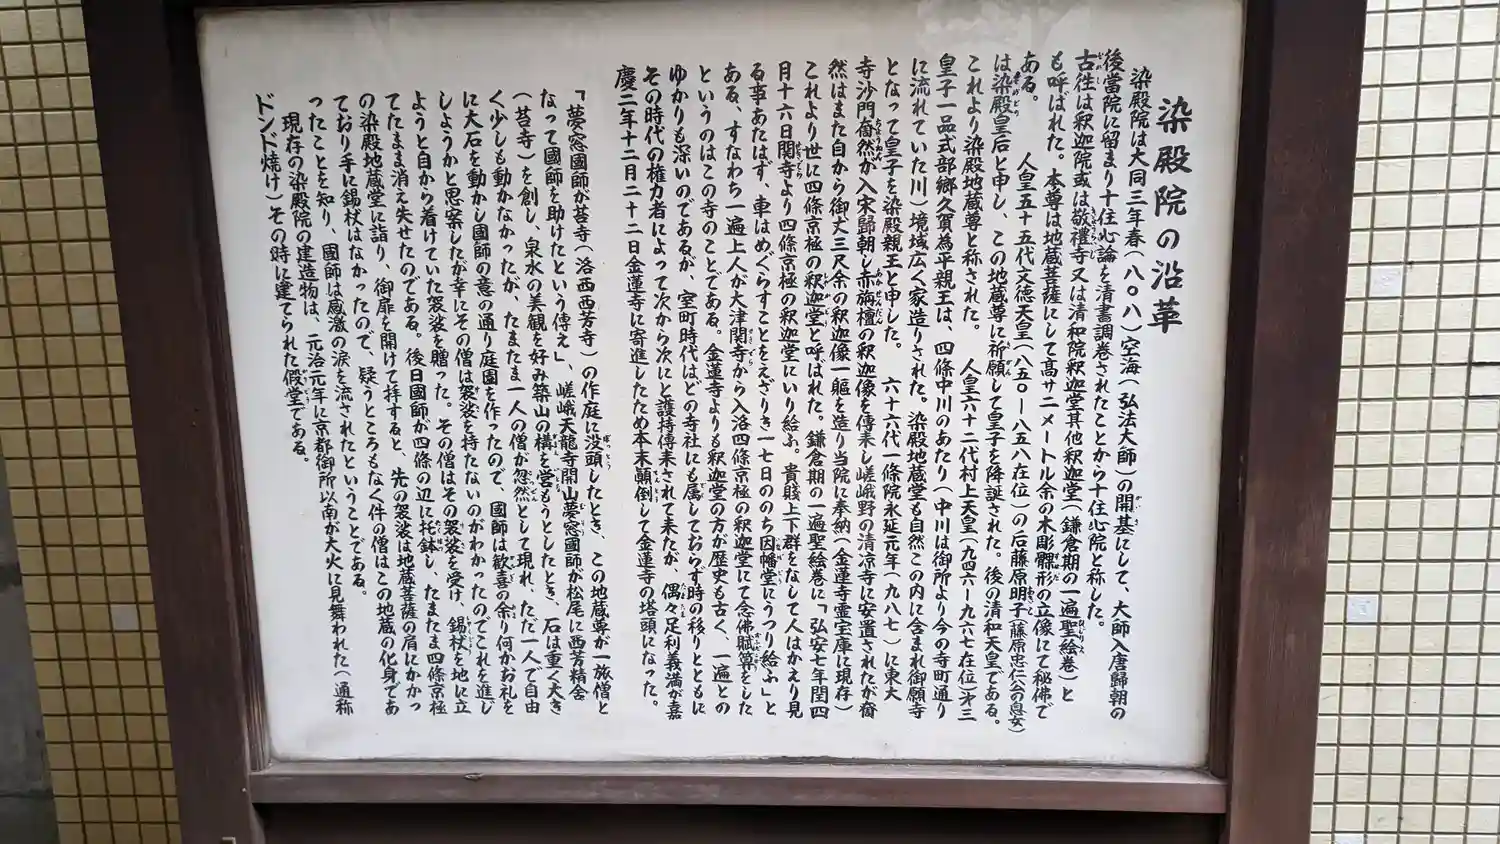 染殿院の沿革
染殿院は大同三年春(八〇八)空海(弘法大師)の開基にして、大師入唐歸朝の
後當院に留まり十住心論を清書調巻されたことから十住心院と称した。
古徃は釈迦院或は敬禮寺又は清和院釈迦堂其他釈迦堂(鎌倉期の一遍聖絵巻)と
も呼ばれた。本尊は地蔵菩薩にして髙サ二メートル余の木彫躶形の立像にて秘佛で
ある。 人皇五十五代文徳天皇(八五〇ー八五八在位)の后藤原明子(藤原忠仁公の息女)
は染殿皇后と申し、この地蔵尊に祈願して皇子を降誕された。後の清和天皇である。
これより染殿地蔵尊と称された。 人皇六十二代村上天皇(九四六ー九六七在位)才三
皇子一品式部郷久賀為平親王は、四條中川のあたり(中川は御所より今の寺町通り
に流れていた川)境域広く家造りされた。染殿地蔵堂も自然この内に含まれ御願寺
となって皇子を染殿親王と申した。 六十六代一條院永延元年(九八七)に東大
寺沙門奝然が入宋歸朝し赤栴檀の釈迦像を傳来し嵯峨野の清凉寺に安置されたが奝
然はまた自から御丈三尺余の釈迦像一軀を造り当院に奉納(金蓮寺霊宝庫に現存)
これより世に四條京極の釈迦堂と呼ばれた。鎌倉期の一遍聖絵巻に「弘安七年閏四
月十六日関寺より四條京極の釈迦堂にいり給ふ。貴賤上下群をなして人はかえり見
る事あたはず、車はめぐらすことをえざりき一七日ののち因幡堂にうつり給ふ」と
ある、すなわち一遍上人が大津関寺から入洛四條京極の釈迦堂にて念佛賦算をした
というのはこの寺のことである。金蓮寺よりも釈迦堂の方が歴史も古く、一遍との
ゆかりも深いのであるが、室町時代はどの寺社にも属しておらず時の移りとともに
その時代の権力者によって次から次にと護持傳来されて来たが、偶々足利義満が嘉
慶二年十二月二十二日金蓮寺に寄進したため本末顛倒して金蓮寺の塔頭になった。
「夢窓國師が苔寺(洛西西芳寺)の作庭に没頭したとき、この地蔵尊が一旅僧と
なって國師を助けたという傳え」、嵯峨天龍寺開山夢窓國師が松尾に西芳精舎
(苔寺)を創し、泉水の美観を好み築山の構を営もうとしたとき、石は重く大き
く少しも動かなかったが、たまたま一人の僧が忽然として現れ、ただ一人で自由
に大石を動かし國師の意の通り庭園を作ったので、國師は歓喜の余り何かお礼を
しようかと思案したが幸にその僧は袈裟を持たないのがわかったのでこれを進じ
ようと自から着けていた袈裟を贈った。その僧はその袈裟を受け、錫杖を地に立
てたまま消え失せたのである。後日國師が四條の辺に托鉢し、たまたま四條京極
の染殿地蔵堂に詣り、御扉を開けて拝すると、先の袈裟は地蔵菩薩の肩にかかっ
ており手に錫杖はなかったので、疑うところもなく件の僧はこの地蔵の化身であ
ったことを知り、國師は感激の涙を流されたということである。
現存の染殿院の建造物は、元治元年に京都御所以南が大火に見舞われた(通称
ドンド焼け)その時に建てられた假堂である。